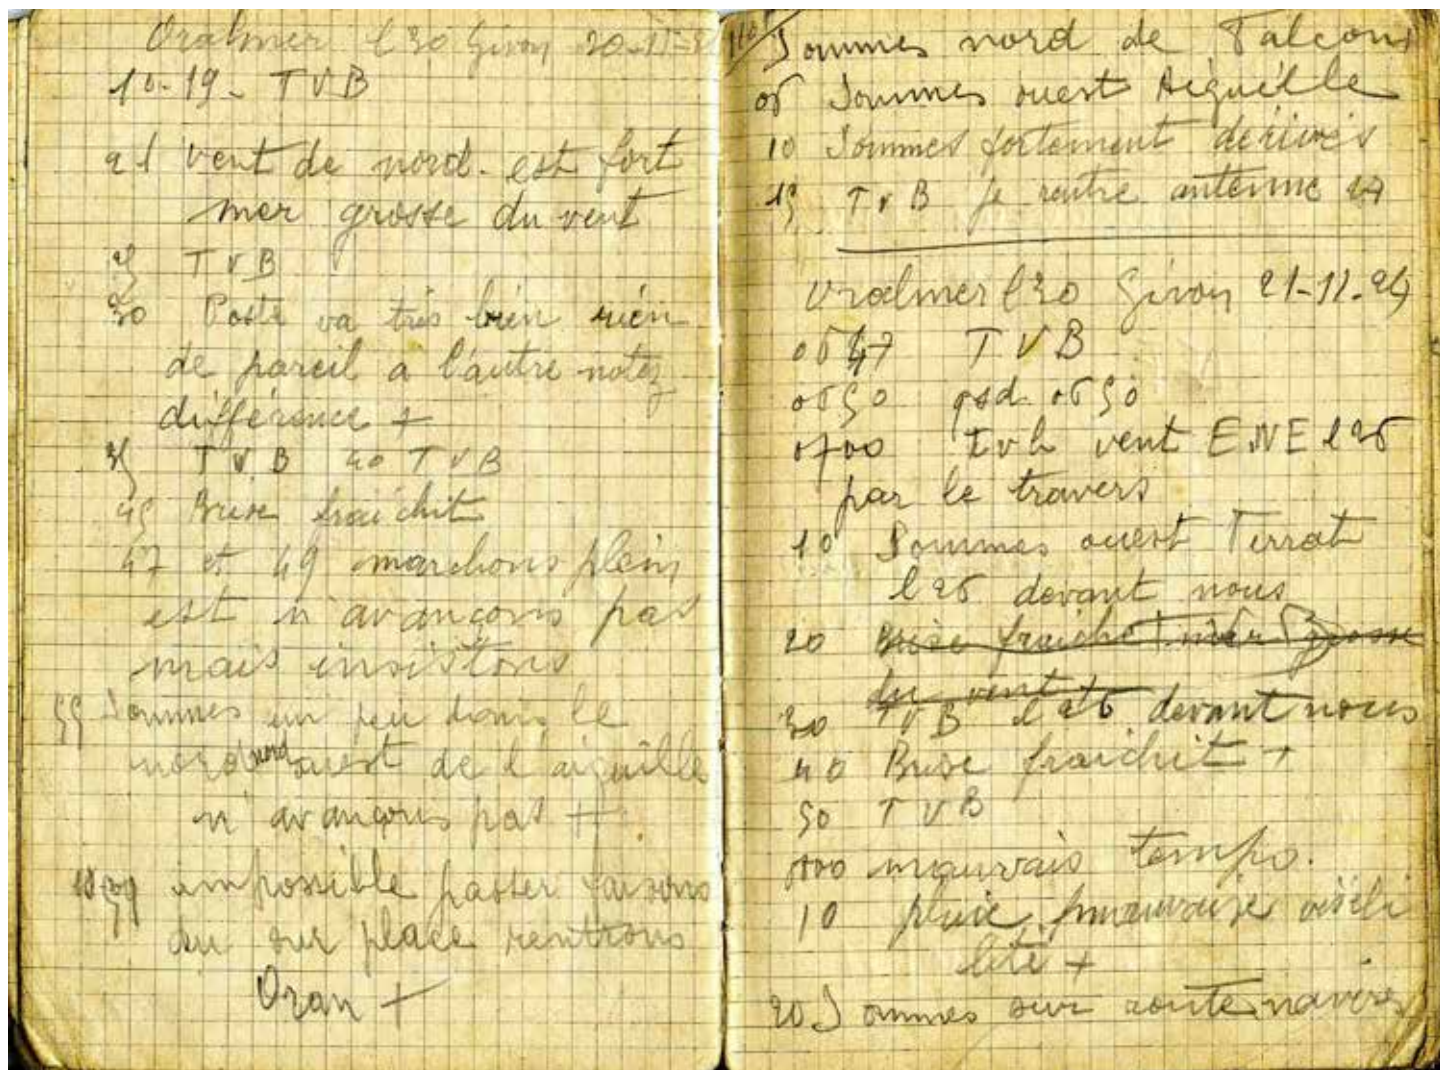 Oralmer l30 Givon 20-11-2
10-19- TVB
21 vent de nord-est fort
mer grosse du vent
25 TVB
30 Poste va très bien rien
de pareil a l'autre notez
différence +
35 TVB 40 TVB
45 Brise fraichit
47 et 49 marchons plein
est n'avançons pas
mais insistons
55 Sommes un peu dans le
nord nord ouest de l'aiguille
n'avançons pas +
59 impossible passer faisons
du sur place rentrons
Oran +
11 Sommes nord de Falcon
05 Sommes ouest Aiguille
10 Sommes fortement dérivés
15 TVB je rentre antenne 17
Oralmer l30 Givon 21-11-24
0647 TVB
0650 qsd 0650
0700 tvb vent ENE l26
par le travers
10 Sommes ouest Ferrat
l26 devant nous
20 Brise fraiche mer grosse
du vent +
30 TVB l26 devant nous
40 Brise fraichit +
50 TVB
0800 mauvais temps.
10 pluie mauvaise visibi
lité +
20 Sommes sur route navires